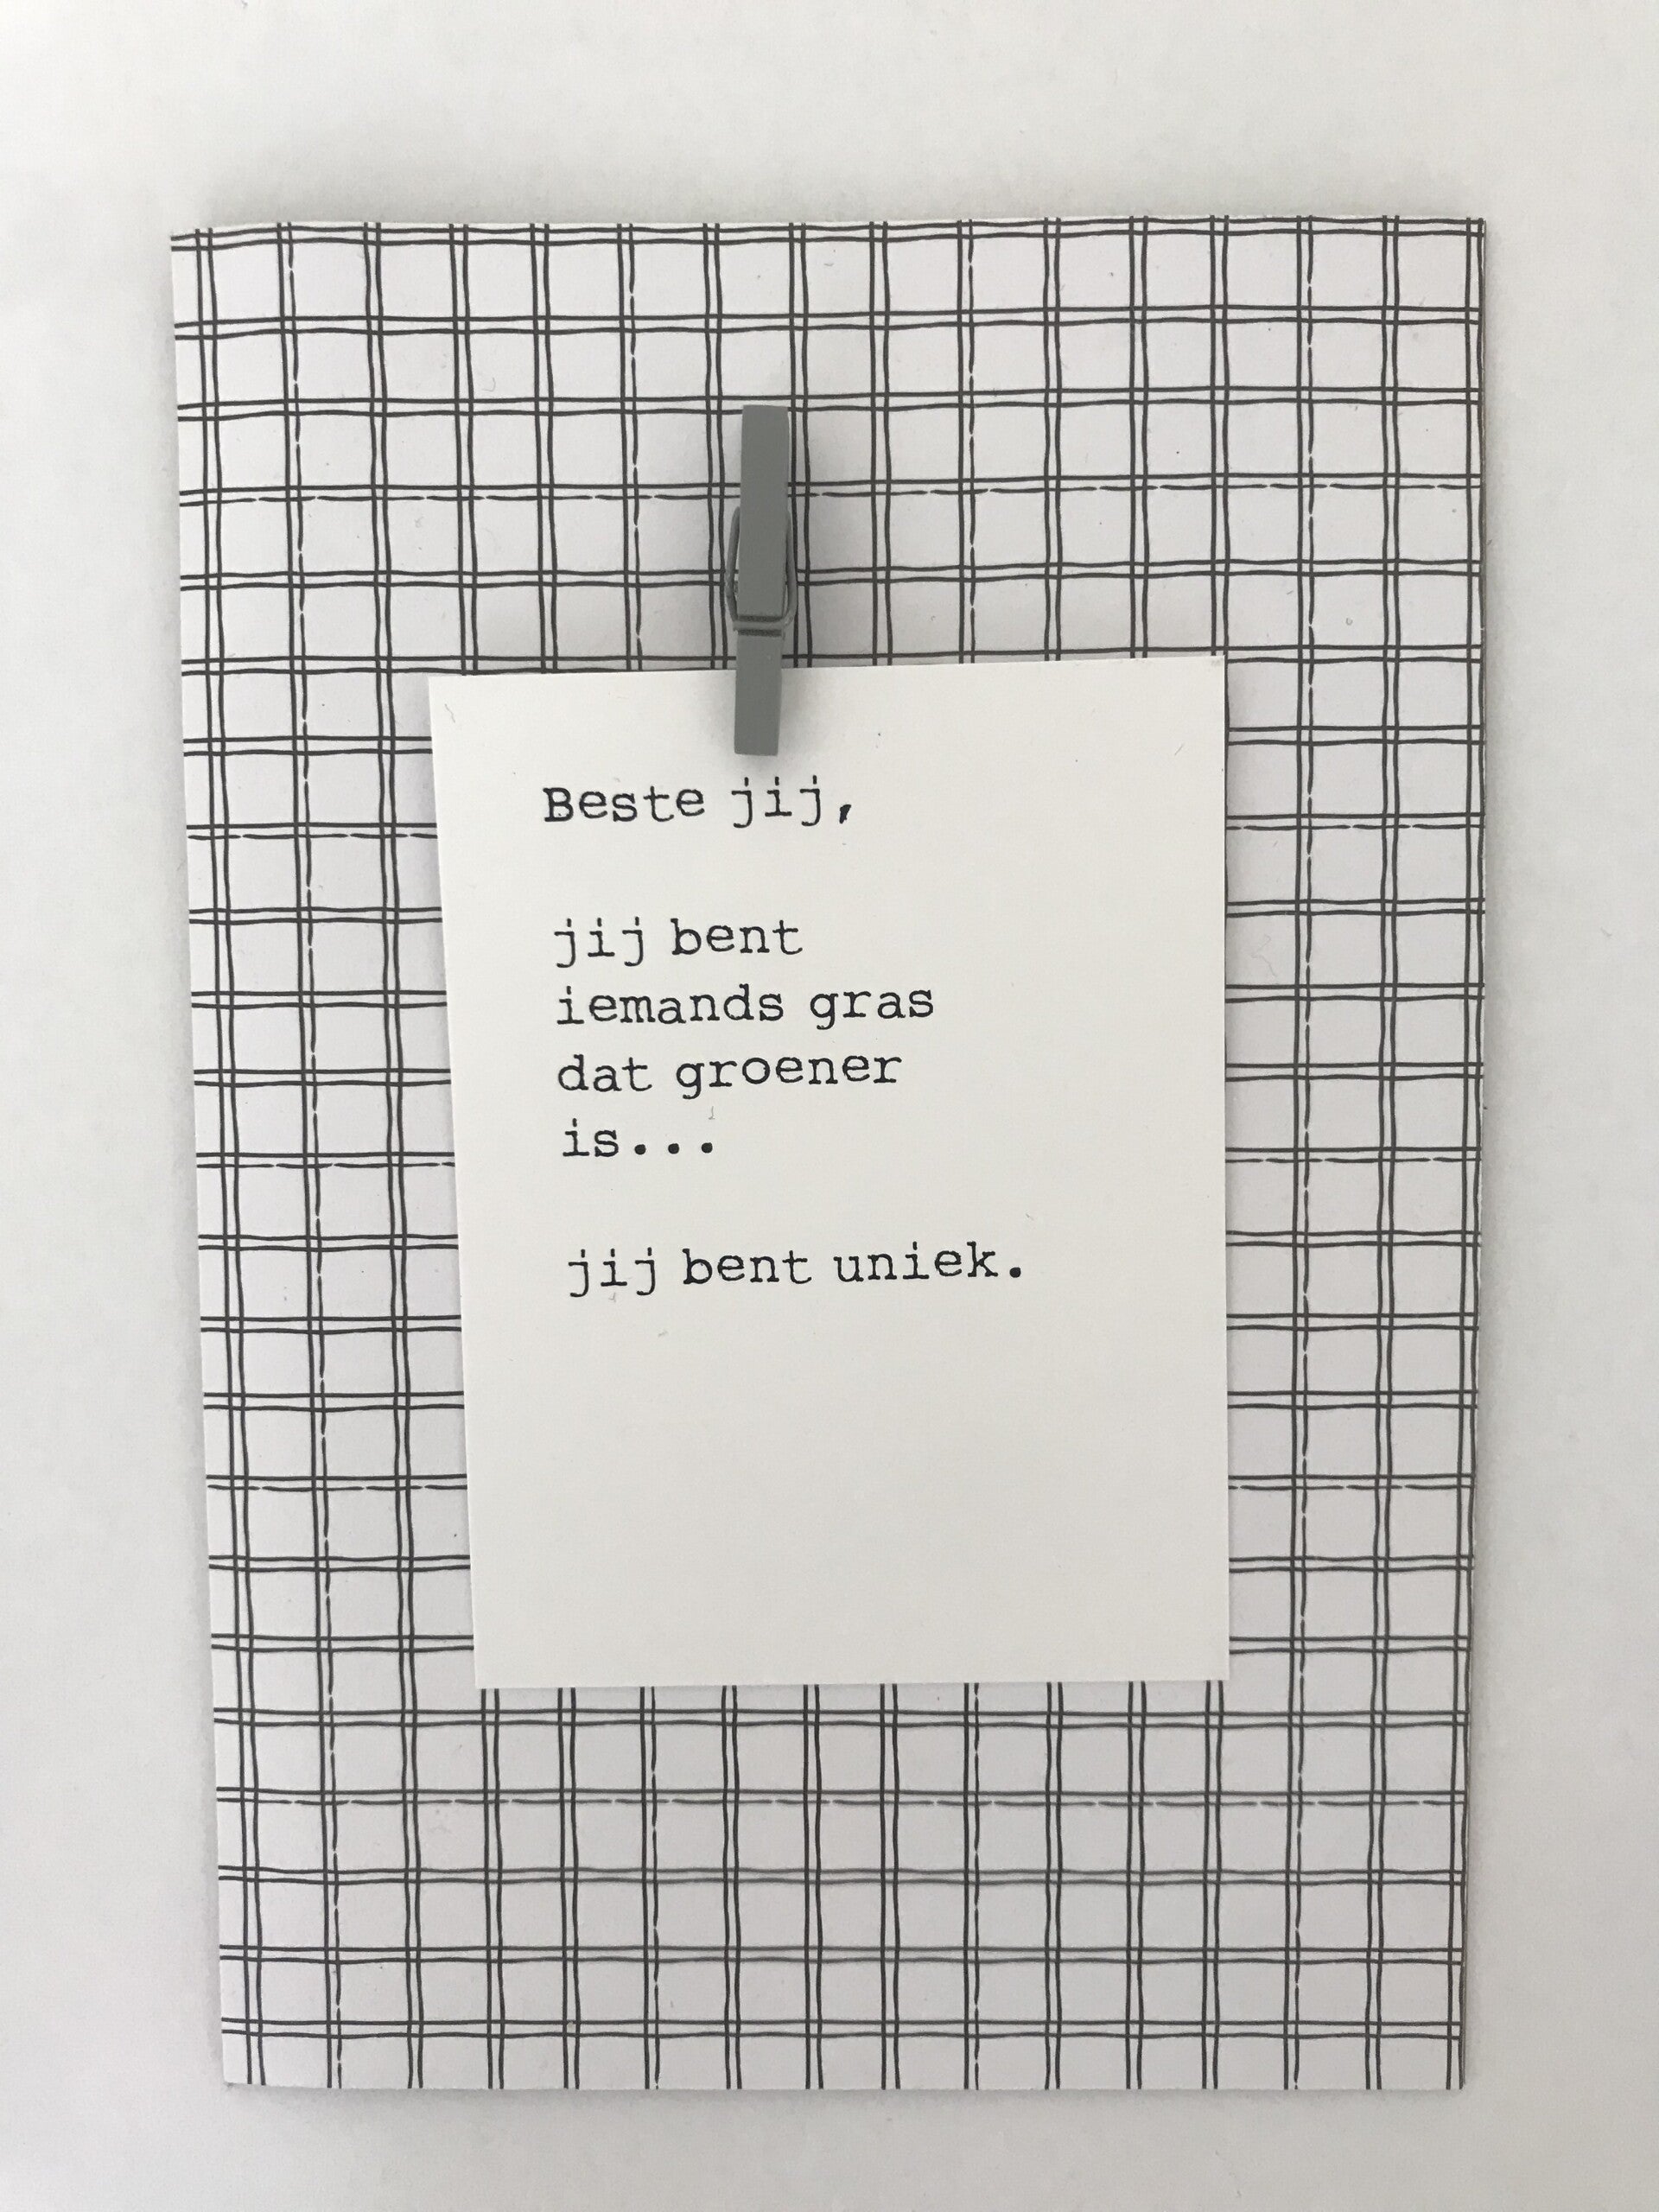 Beste jij,
jij bent
iemands gras
dat groener
is...
jij bent uniek.